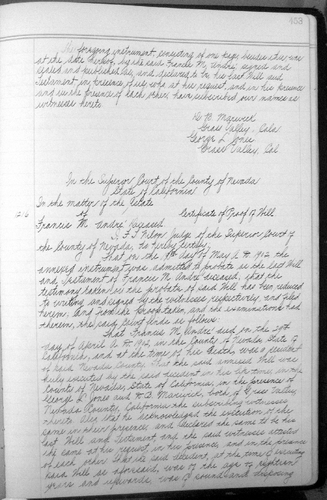 453
The foregoing instrument, consisting of one page besides this was
at the date thereof by the said Francis M. Andre signed and
sealed and published as, and declared to be his last Will and
Testament, in presence of us, who at his request, and in his presence
and in the presence of each other, have subscribed our names as
witnesses hereto.
Grass Valley, Cala
George L. Jones
Grass Valley, Cal
In the Superior Court of the County of Nevada
State of California
In the matter of the Estate
of
Certificate of Proof of Will
Francis M. Andre Deceased
Judge of the Superior Court of
the County of Nevada, do hereby certify:
That on the day of May A.D. 1912 the
annexed instrument was admitted to probate as the last Will
and Testament of Francis M. Andre deceased, after the
testimony taken in the probate of said Will has been reduced
to writing, and signed by the witnesses, respectively, and filed
herein, and proofs taken, and the examinations had
therein, the said Court finds as follows:
That Francis M. Andre died on the 29th
day of April A.D. 1912, in the County of Nevada, State of
California, and at the time of his death, was a resident
of said Nevada County. That the said annexed Will was
duly executed by the said decedent in his life time, in the
County of Nevada, State of California, in the presence of
George L. Jones and both of Grass Valley
Nevada County, California the subscribing witnesses
thereto. Also that he acknowledged the execution of the
same in their presence and declared the same to be his
last Will and Testament and the said witnesses attested
the same at his request, in his presence, and in the presence
of each other. That the said decedent, at the time of executing
said Will as aforesaid, was of the age of eighteen
years and upwards, was of sound and disposing